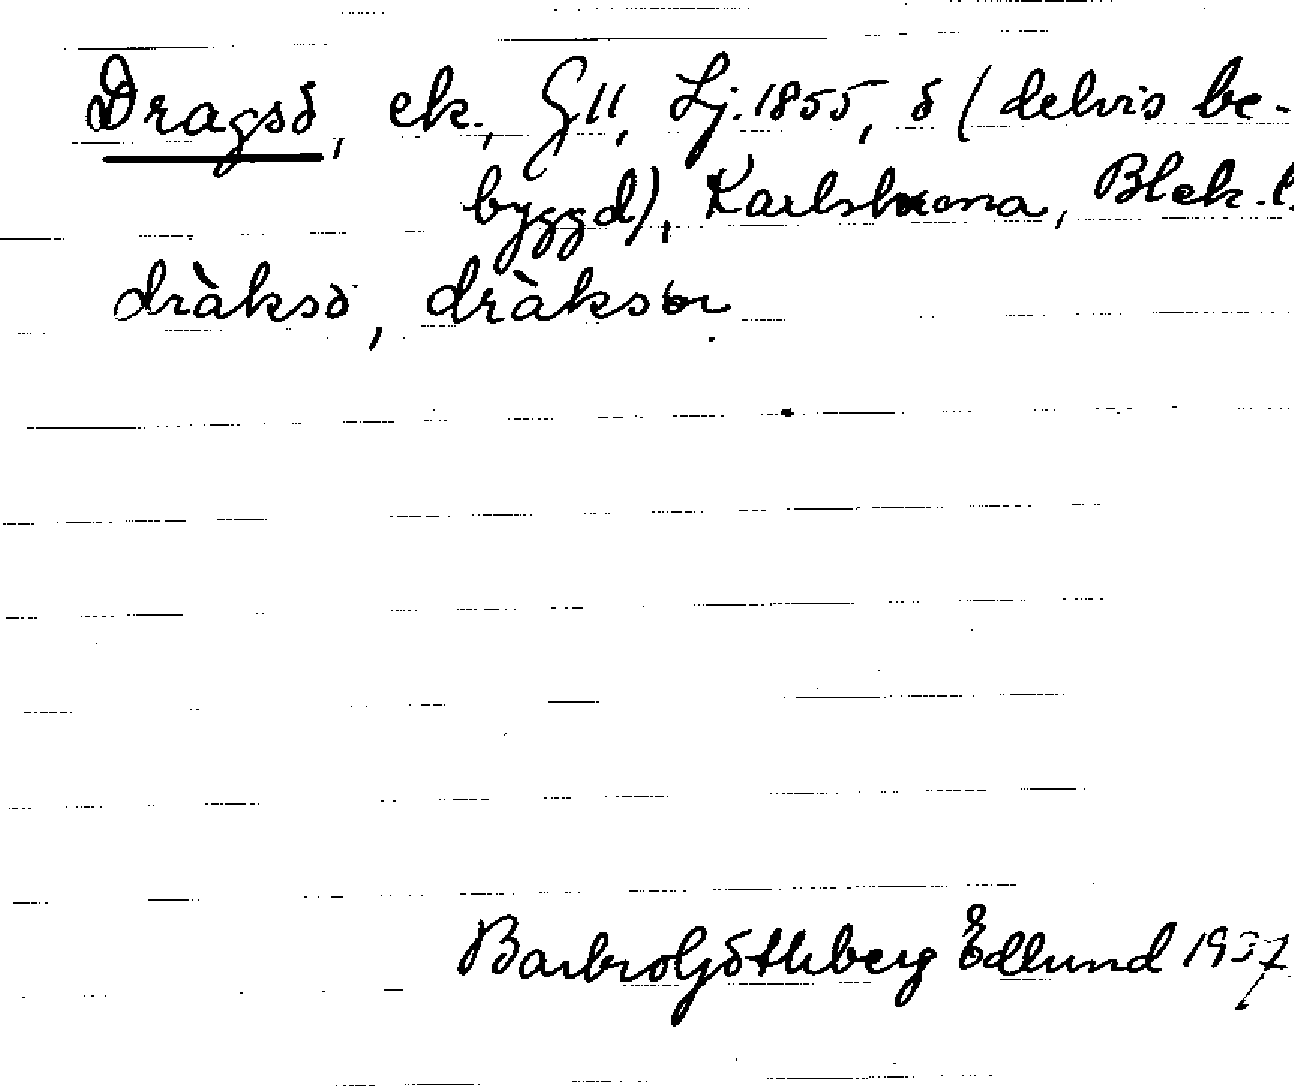 Dragsö, ek., G11, Lj. 1855, ö (delvis be-
byggd), Karlskrona, Blek. l.
dràksö, dràksön
Barbro Götheberg Edlund 1937